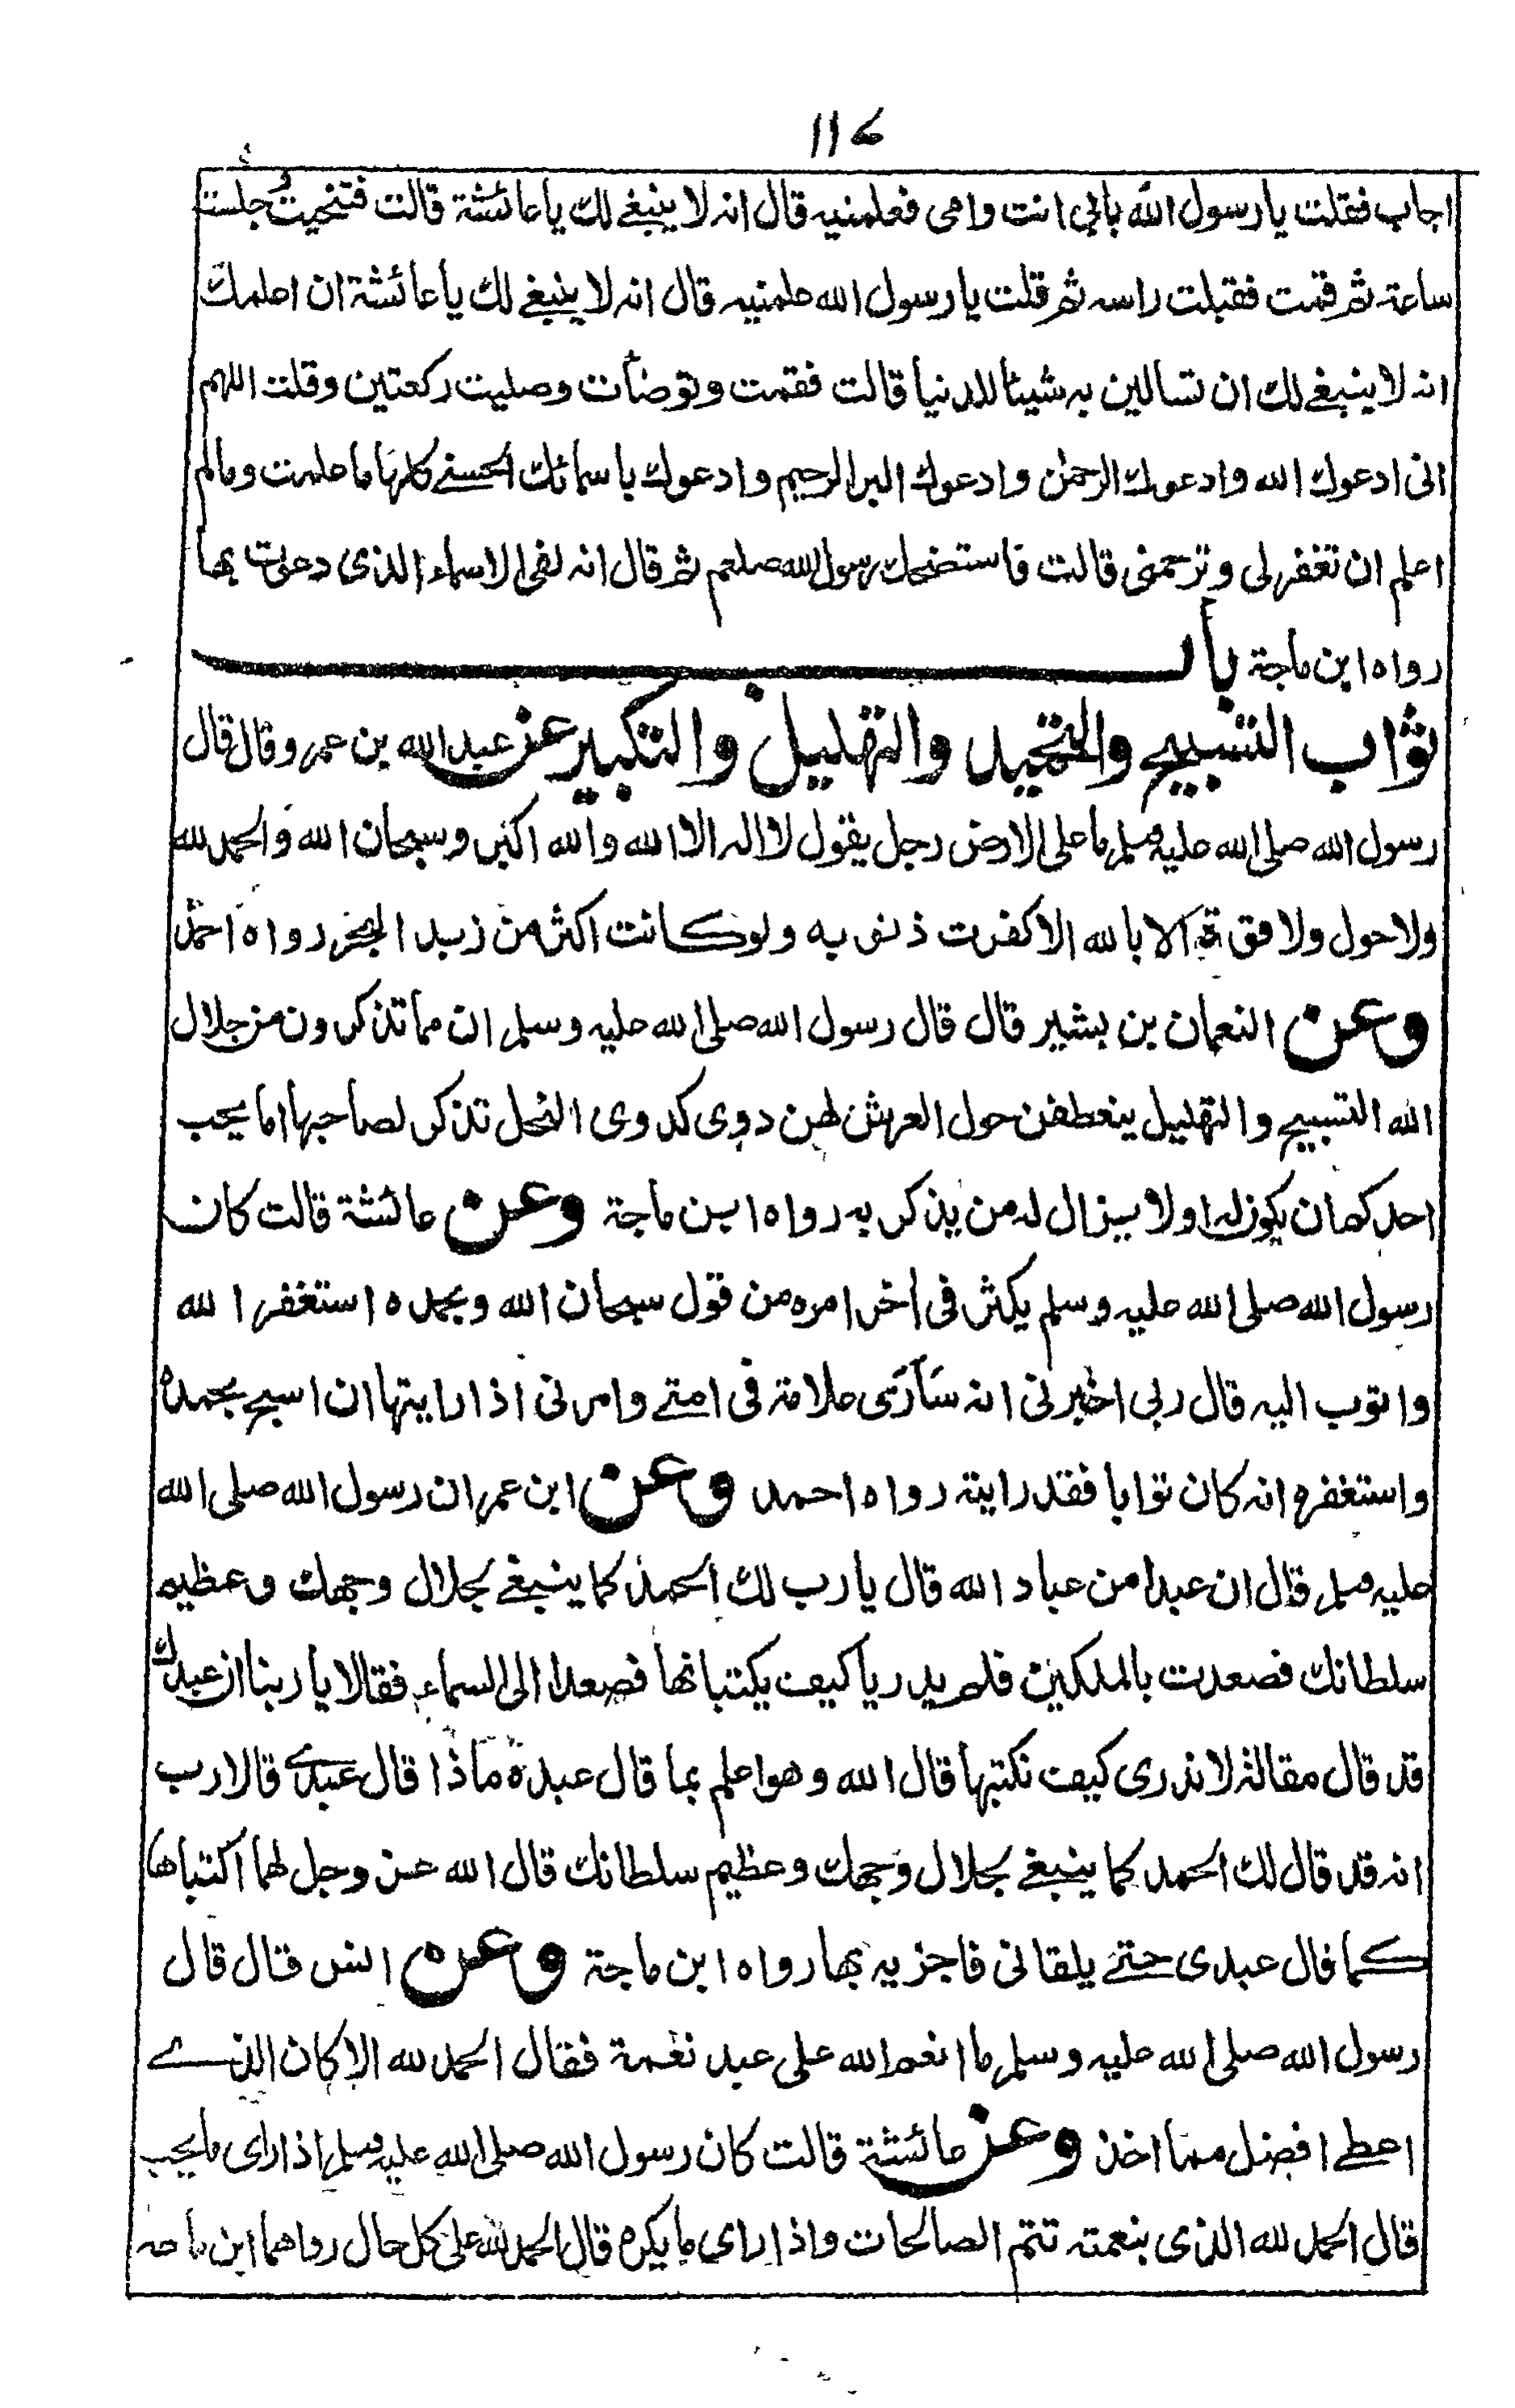 ١١٧
اجاب فقلت يا رسول الله بابي انت وامي فعلمنيه قال انه لا ينبغي لك يا عائشة قالت فتنحيت وجلست
ساعة ثم قمت فقبلت راسه ثم قلت يا رسول الله علمنيه قال انه لا ينبغي لك يا عائشة ان اعلمك
انه لا ينبغي لك ان تسالين به شيئا للدنيا قالت فقمت وتوضأت وصليت ركعتين وقلت اللهم
اني ادعوك الله وادعوك الرحمن وادعوك البر الرحيم وادعوك باسمائك الحسنے كلها ما علمت وما لم
اعلم ان تغفر لي وترحمني قالت فاستضحك رسول الله صلعم ثم قال انه لفي الاسماء الذى دعوت بها
رواه ابن ماجة باب
ثواب التسبيح والتحميد والتهليل والتكبير عن عبد الله بن عمرو قال قال
رسول الله صلى الله عليه وسلم ما على الارض رجل يقول لا اله الا الله والله اكبر وسبحان الله والحمد لله
ولا حول ولا قوة الا بالله الا كفرت ذنوبه ولو كانت اكثر من زبد البحر رواه احمد
وعن النعمان بن بشير قال قال رسول الله صلى الله عليه وسلم ان مما تذكرون من جلال
الله التسبيح والتهليل ينعطفن حول العرش لهن دوى كدوى النحل تذكر لصاحبها اما يحب
احدكم ان يكون له او لا يزال له من يذكر به رواه ابن ماجة وعن عائشة قالت كان
رسول الله صلى الله عليه وسلم يكثر فى اخر امره من قول سبحان الله وبحمده استغفر الله
واتوب اليه قال ربي اخبرنى انه سأرى علامة فى امتے وامرنى اذا رايتها ان اسبح بحمده
واستغفره انه كان توابا فقد رايته رواه احمد وعن ابن عمر ان رسول الله صلى الله
عليه وسلم قال ان عبدا من عباد الله قال يا رب لك الحمد كما ينبغے لجلال وجهك وعظيم
سلطانك فصعدت بالملكين فلم يدريا كيف يكتبانها فصعدا الى السماء فقالا يا ربنا ان عبدك
قد قال مقالة لا ندرى كيف نكتبها قال الله وهو اعلم بما قال عبده ماذا قال عبدے قالا رب
انه قد قال لك الحمد كما ينبغے لجلال وجهك وعظيم سلطانك قال الله عز وجل لهما اكتباها
كما قال عبدى حتے يلقانى فاجزيه بها رواه ابن ماجة وعن انس قال قال
رسول الله صلى الله عليه وسلم ما انعم الله على عبد نعمة فقال الحمد لله الا كان الذے
اعطے افضل مما اخذ وعن عائشة قالت كان رسول الله صلى الله عليه وسلم اذا راى ما يحب
قال الحمد لله الذى بنعمته تتم الصالحات واذا راى ما يكره قال الحمد لله على كل حال رواهما ابن ماجه